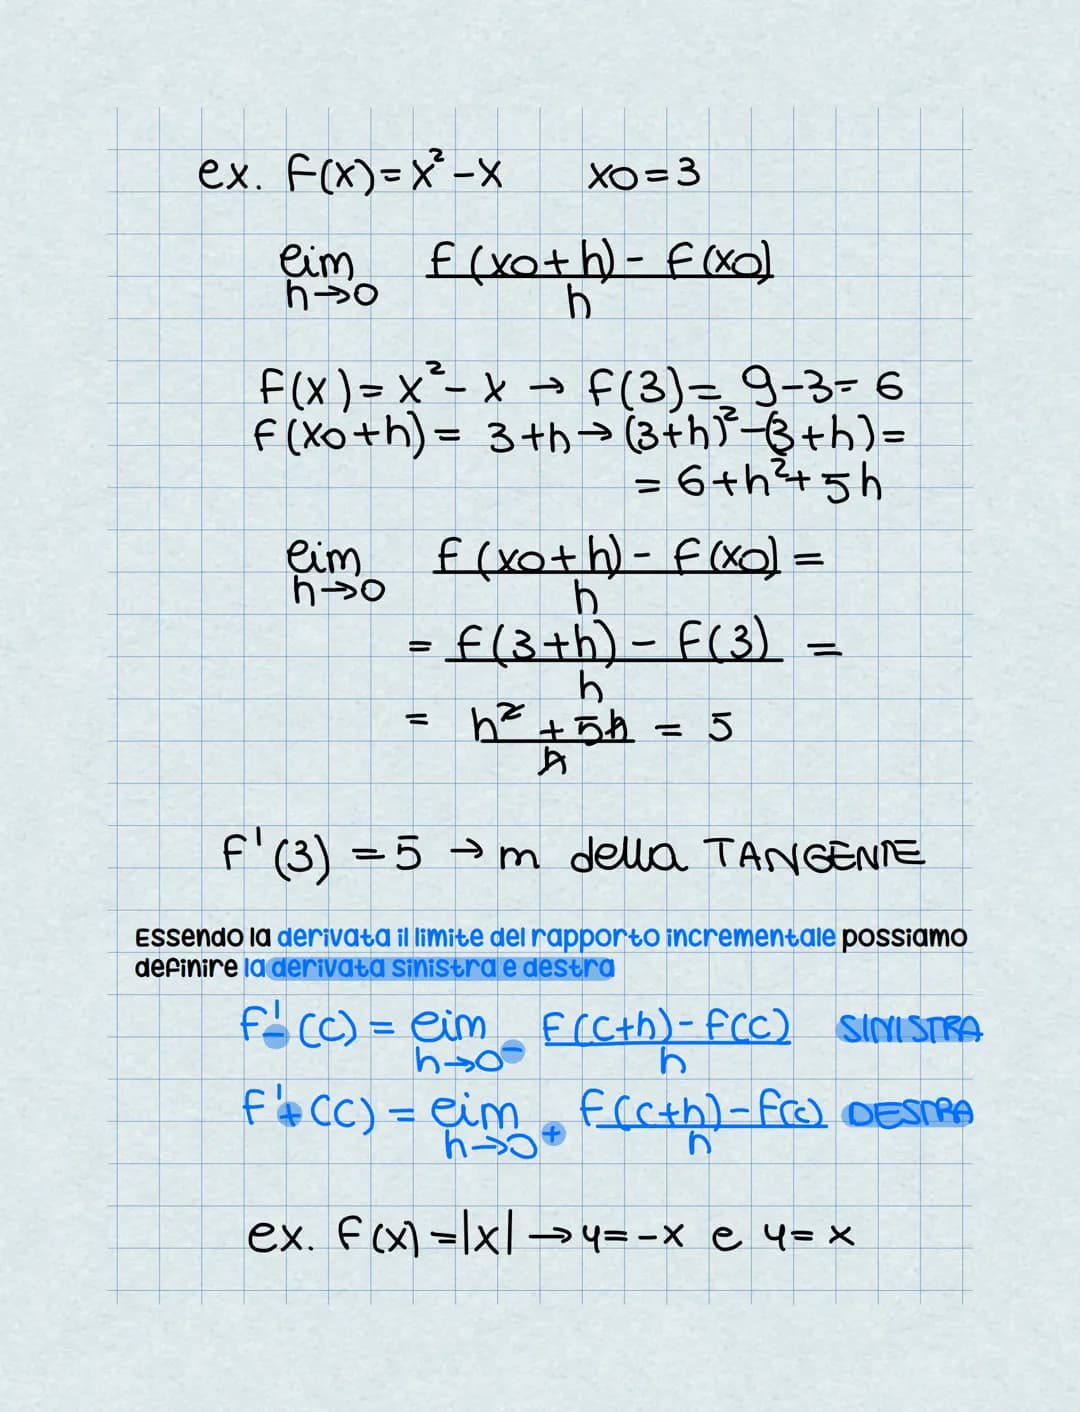 ex. f(x)=x²-x x0=3
lim f(x0+h)-f(x0)
h→0 h
f(x)=x²-x → f(3)= 9-3=6
f(x0+h)= 3+h→(3+h)²-(3+h)=
= 6+h²+5h
lim f(x0+h)-f(x0) =
h→0 h
= f(3+h)-f(3) =
h
= h²+5h = 5
h
f'(3) =5 → m della TANGENTE
Essendo la derivata il limite del rapporto incrementale possiamo
definire la derivata sinistra e destra
f'-(c) = lim f(c+h)-f(c) SINISTRA
h→0- h
f'+(c) = lim f(c+h)-f(c) DESTRA
h→0+ h
ex. f(x)=|x| → y=-x e y=x